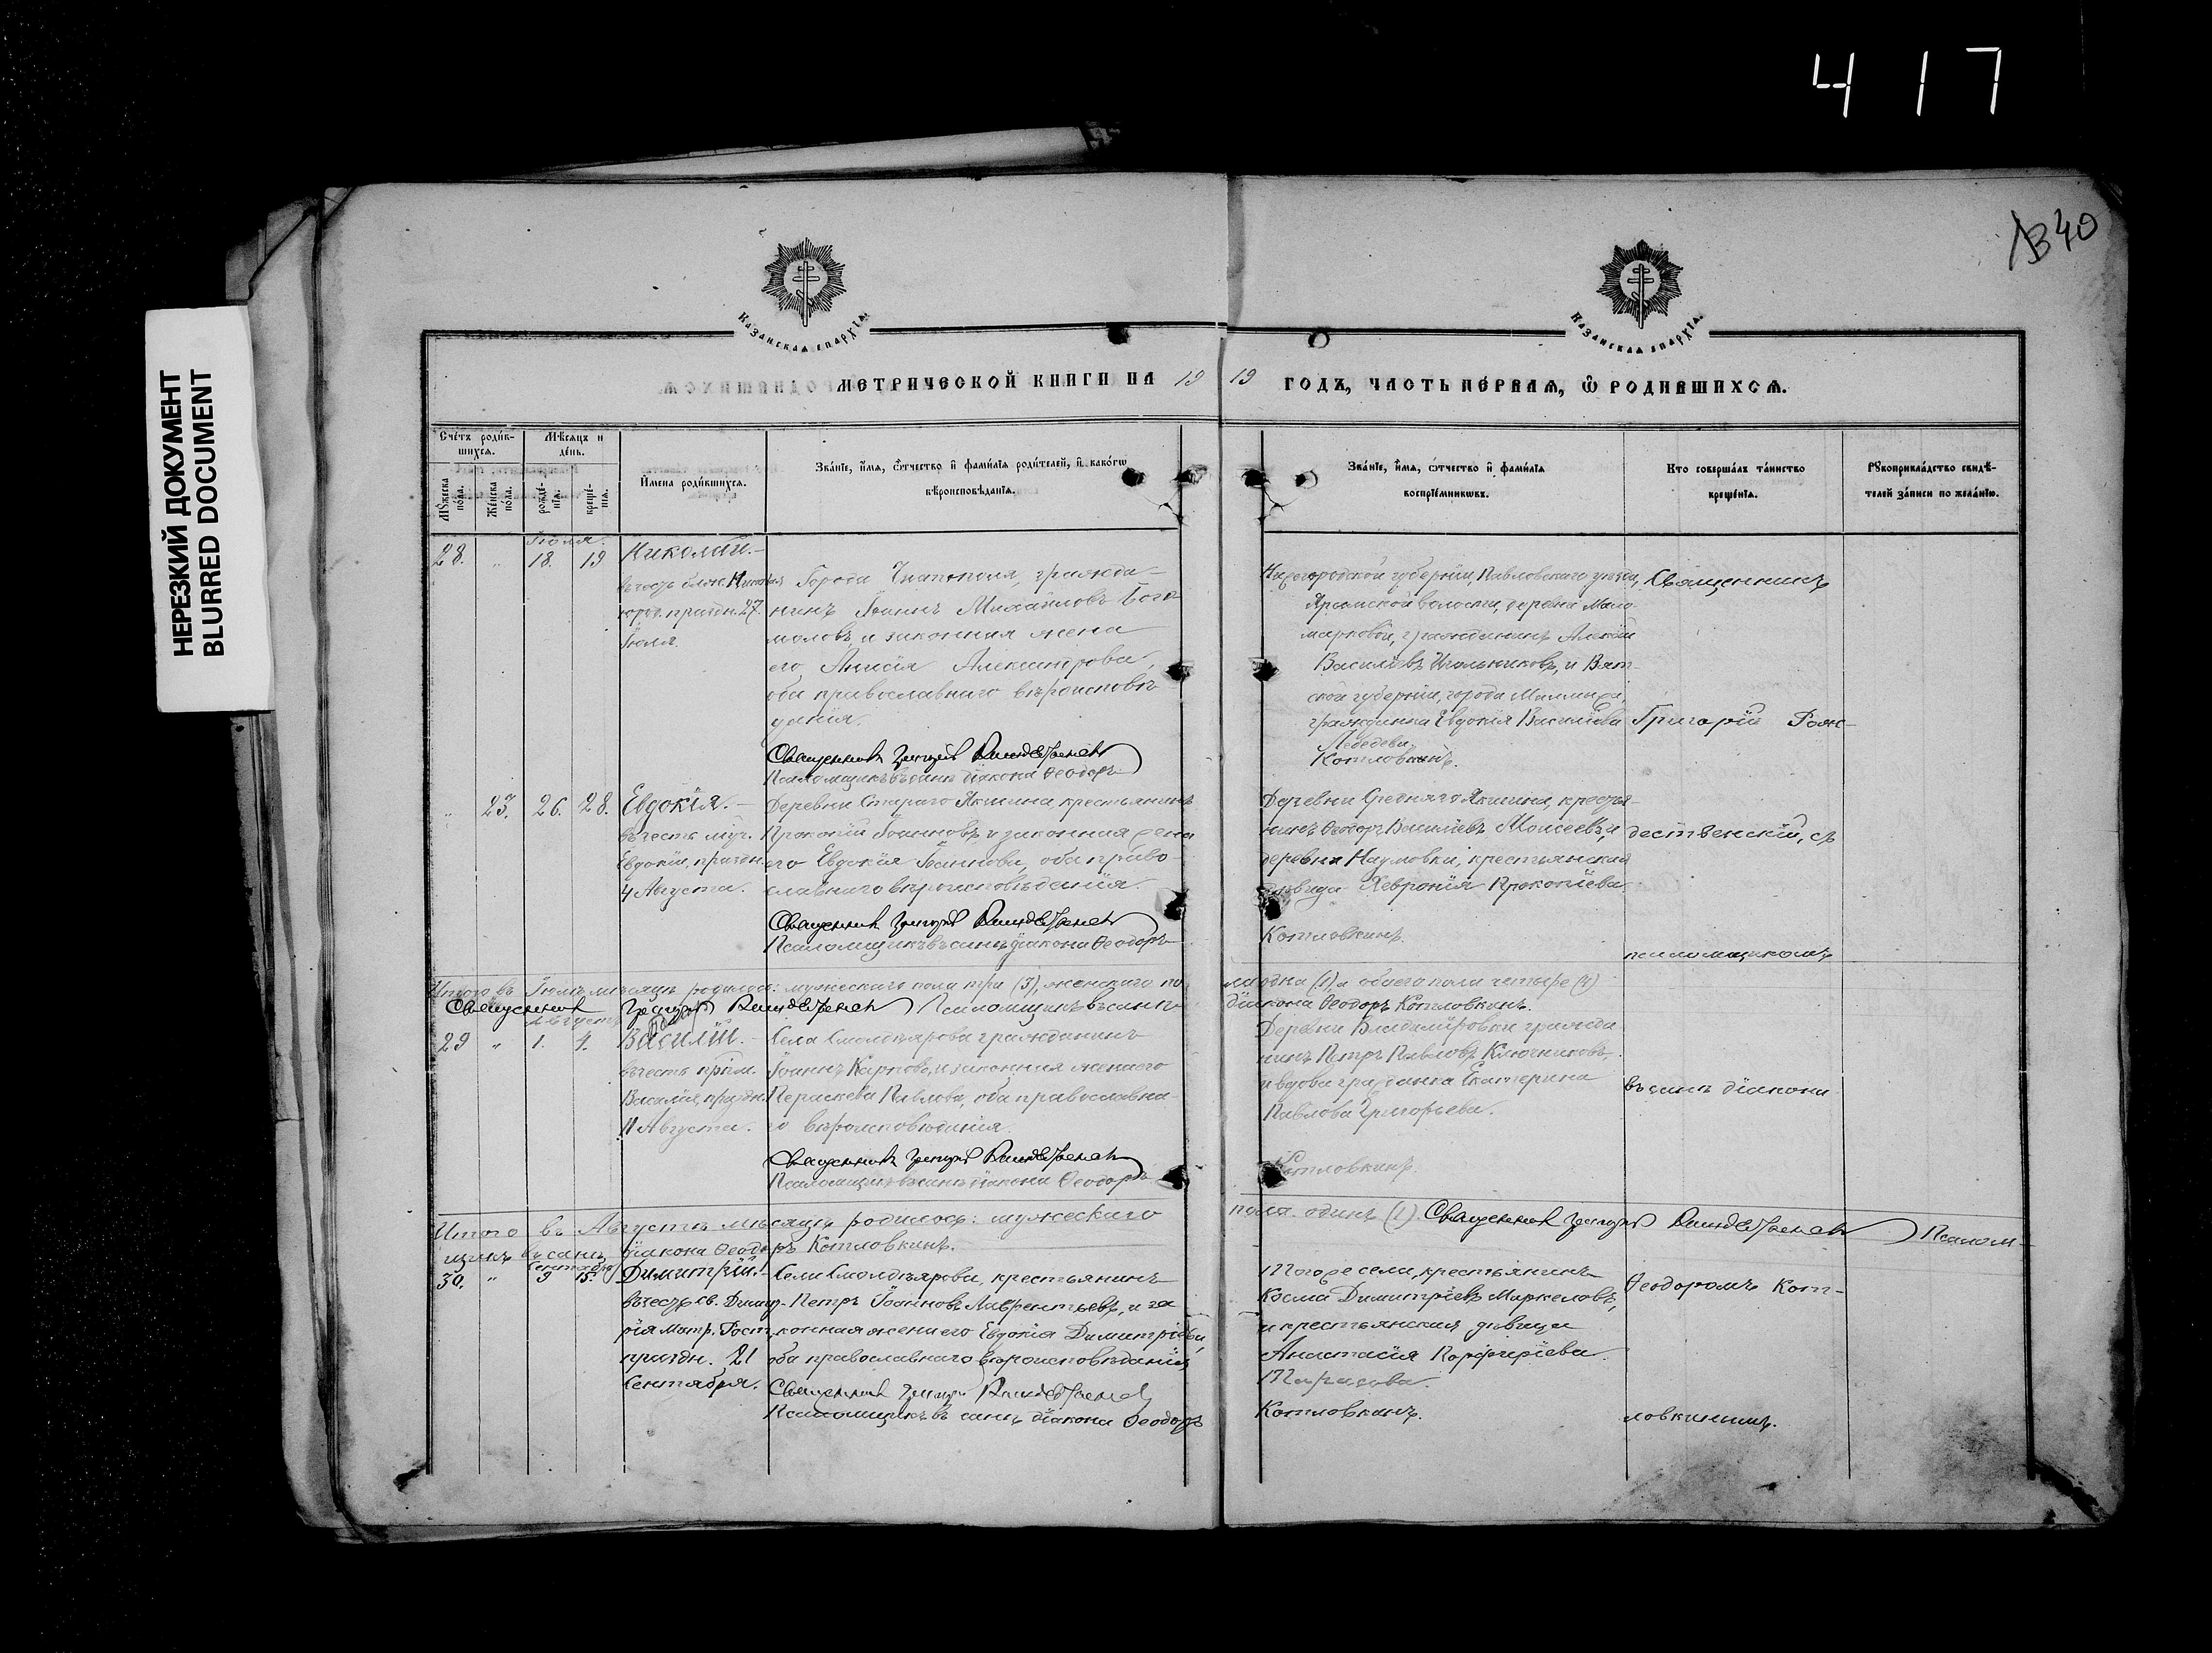 417
НЕРЕЗКИЙ ДОКУМЕНТ
BLURRED DOCUMENT
340
КАЗАНСКАѦ ЕПАРХІѦ.
КАЗАНСКАѦ ЕПАРХІѦ.
МЕТРИЧЕСКОЙ КНИГИ НА 19 19 ГОДЪ, ЧАСТЬ ПЕ́РВАѦ, Ѽ РОДИВШИХСѦ.
Сче́тъ роди́в-
шихсѧ.
Мѣ́сѧцъ и
де́нь.
Мꙋ́жеска
по́ла.
Же́нска
по́ла.
рожде́-
нїѧ.
креще́-
нїѧ.
И҆мена роди́вшихсѧ.
Зва́нїе, и҆́мѧ, ѻ҆́тчество и҆ фами́лїѧ роди́телей, и҆ како́гѡ
вѣроисповѣ́данїѧ.
Зва́нїе, и҆́мѧ, ѻ҆́тчество и҆ фами́лїѧ
воспрїе́мникѡвъ.
Кто соверша́лъ та́инство
креще́нїѧ.
Рꙋкоприкла́дство свидѣ́-
телей за́писи по жела́нїю.
Іюля.
28. " 18. 19 Николай.-
въ честь блж. Николая
юрод. праздн. 27.
Іюля.
Города Чистополя, гражда-
нинъ Іоаннъ Михайловъ Бого-
моловъ, и законная жена
его, Анисія Александрова,
оба православнаго вѣроисповѣ-
данія.
Священникъ Григорій Рождественскій
Псаломщикъ въ санѣ діакона Ѳеодоръ
Нижегородской губерніи, Павловскаго уѣзда,
волости, деревни Мало-
марковой, гражданинъ Алексій
Василіевъ Игольниковъ, и Вят-
ской губерніи, города Малмыжа,
гражданка Евдокія Василіева
Лебедева.
Котловкинъ.
Священникъ
Григорій Рож-
" 23. 26. 28. Евдокія.-
въ честь муч.
Евдокіи, праздн.
4 Августа.
Деревни Стараго Якшина, крестьянинъ
Прокопій Іоанновъ, и законная жена
его Евдокія Іоаннова, оба право-
славнаго вѣроисповѣданія.
Священникъ Григорій Рождественскій
Псаломщикъ въ санѣ діакона Ѳеодоръ
Деревни Средняго Якшина, крестья-
нинъ Ѳеодоръ Василіевъ Моисеевъ, и
деревни Наумовки, крестьянская
дѣвица Хевронія Прокопіева.
Котловкинъ.
дественскій, съ
псаломщикомъ
Итого въ Іюлѣ мѣсяцѣ родилось: мужескаго пола три (3), женскаго по
ла одна (1), а обоего пола четыре (4)
Священникъ Григорій Рождественскій Псаломщикъ въ санѣ
діакона Ѳеодоръ Котловкинъ.
Августъ
29 " 1. 4. Василій.-
въ честь прпм.
Василія, праздн.
11 Августа.
Села Смолдеярова гражданинъ
Іоаннъ Карповъ, и законная жена его
Параскева Павлова, оба православна-
го вѣроисповѣданія.
Священникъ Григорій Рождественскій
Псаломщикъ въ санѣ діакона Ѳеодоръ
Деревни Владиміровки гражда
нинъ Петръ Павловъ Ключниковъ,
и вдова гражданка Екатерина
Павлова Григорьева.
Котловкинъ.
въ санѣ діакона
Итого въ Августѣ мѣсяцѣ родилось: мужескаго
пола одинъ (1). Священникъ Григорій Рождественскій Псалом-
щикъ въ санѣ діакона Ѳеодоръ Котловкинъ.
Сентябрь
30. " 9 15. Димитрій.-
въ честь св. Димит-
рія Митр. Рост.
праздн. 21
Сентября.
Села Смолдеярова, крестьянинъ
Петръ Іоанновъ Лаврентьевъ, и за
конная жена его Евдокія Димитріева,
оба православнаго вѣроисповѣданія
Священникъ Григорій Рождественскій
Псаломщикъ въ санѣ діакона Ѳеодоръ
Того же села, крестьянинъ
Косма Димитріевъ Маркеловъ,
и крестьянская дѣвица
Анастасія Порфиріева
Тарасова.
Котловкинъ.
Ѳеодоромъ Кот-
ловкинымъ.